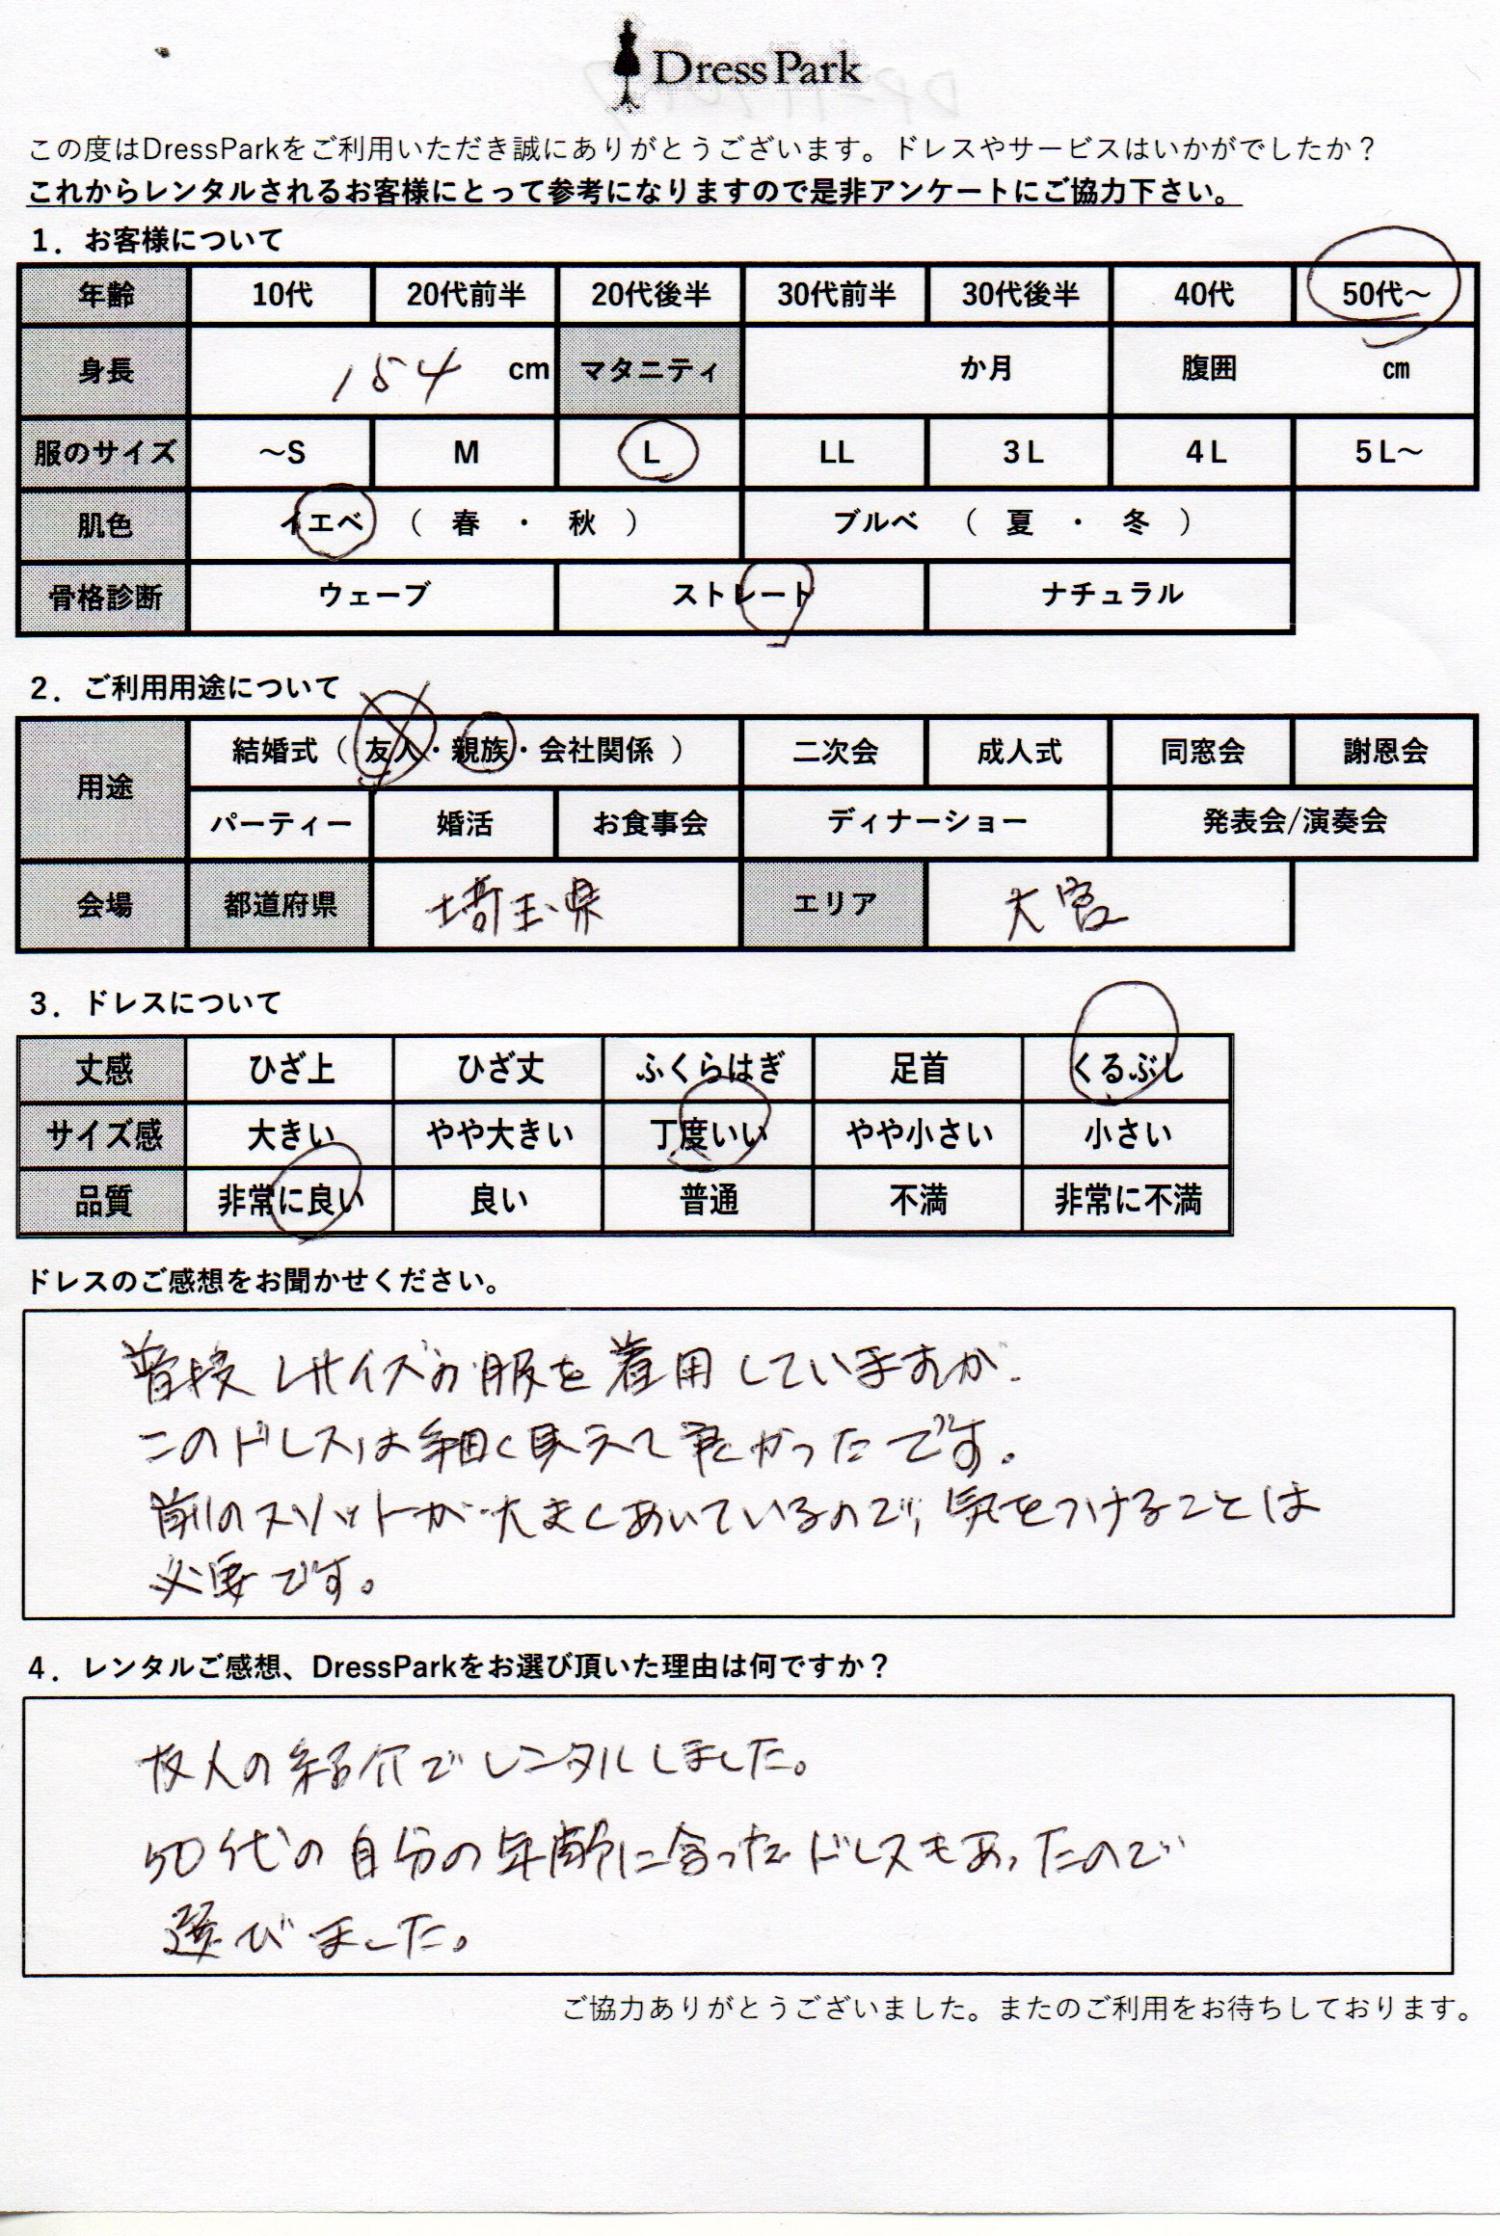 Dress Park
この度はDressParkをご利用いただき誠にありがとうございます。ドレスやサービスはいかがでしたか？
これからレンタルされるお客様にとって参考になりますので是非アンケートにご協力下さい。
1．お客様について
年齢 10代 20代前半 20代後半 30代前半 30代後半 40代 50代～
身長 154 cm マタニティ か月 腹囲 cm
服のサイズ ～S M L LL 3L 4L 5L～
肌色 イエベ （ 春 ・ 秋 ） ブルベ （ 夏 ・ 冬 ）
骨格診断 ウェーブ ストレート ナチュラル
2．ご利用用途について
用途 結婚式（ 友人・親族・会社関係 ） 二次会 成人式 同窓会 謝恩会
パーティー 婚活 お食事会 ディナーショー 発表会/演奏会
会場 都道府県 埼玉県 エリア 大宮
3．ドレスについて
丈感 ひざ上 ひざ丈 ふくらはぎ 足首 くるぶし
サイズ感 大きい やや大きい 丁度いい やや小さい 小さい
品質 非常に良い 良い 普通 不満 非常に不満
ドレスのご感想をお聞かせください。
普段 Lサイズの服を着用していますが、
このドレスは細く見えて良かったです。
前のスリットが大きくあいているので、気をつけることは
必要です。
4．レンタルご感想、DressParkをお選び頂いた理由は何ですか？
友人の紹介でレンタルしました。
50代の自分の年齢に合ったドレスもあったので
選びました。
ご協力ありがとうございました。またのご利用をお待ちしております。